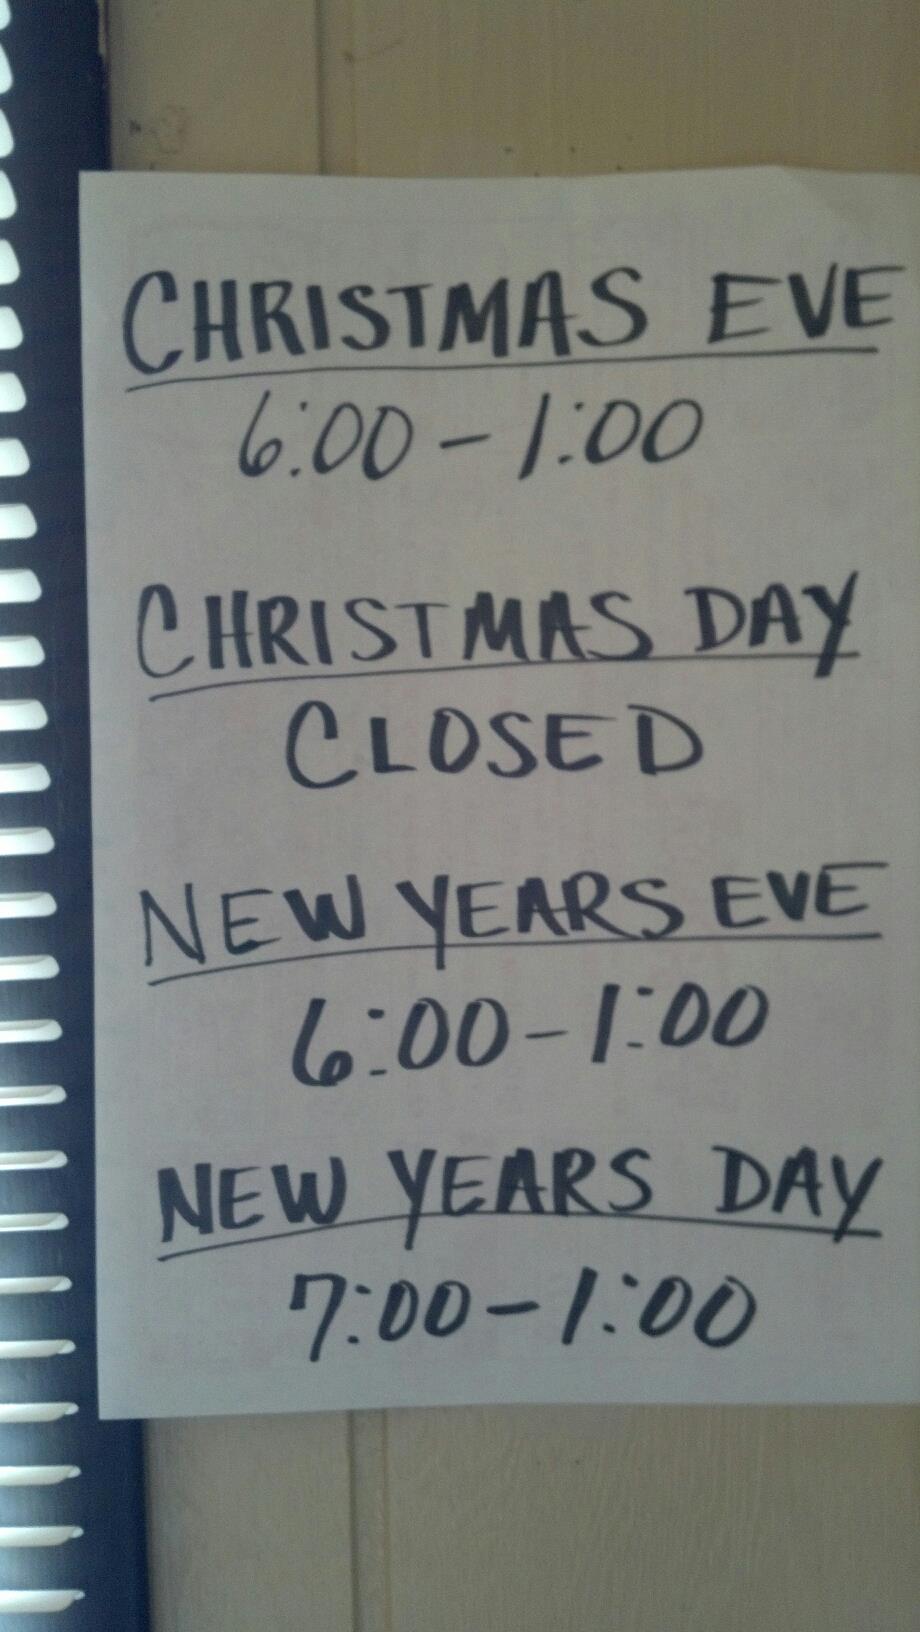 CHRISTMAS EVE
6:00 - 1:00
CHRISTMAS DAY
CLOSED
NEW YEARS EVE
6:00 - 1:00
NEW YEARS DAY
7:00 - 1:00